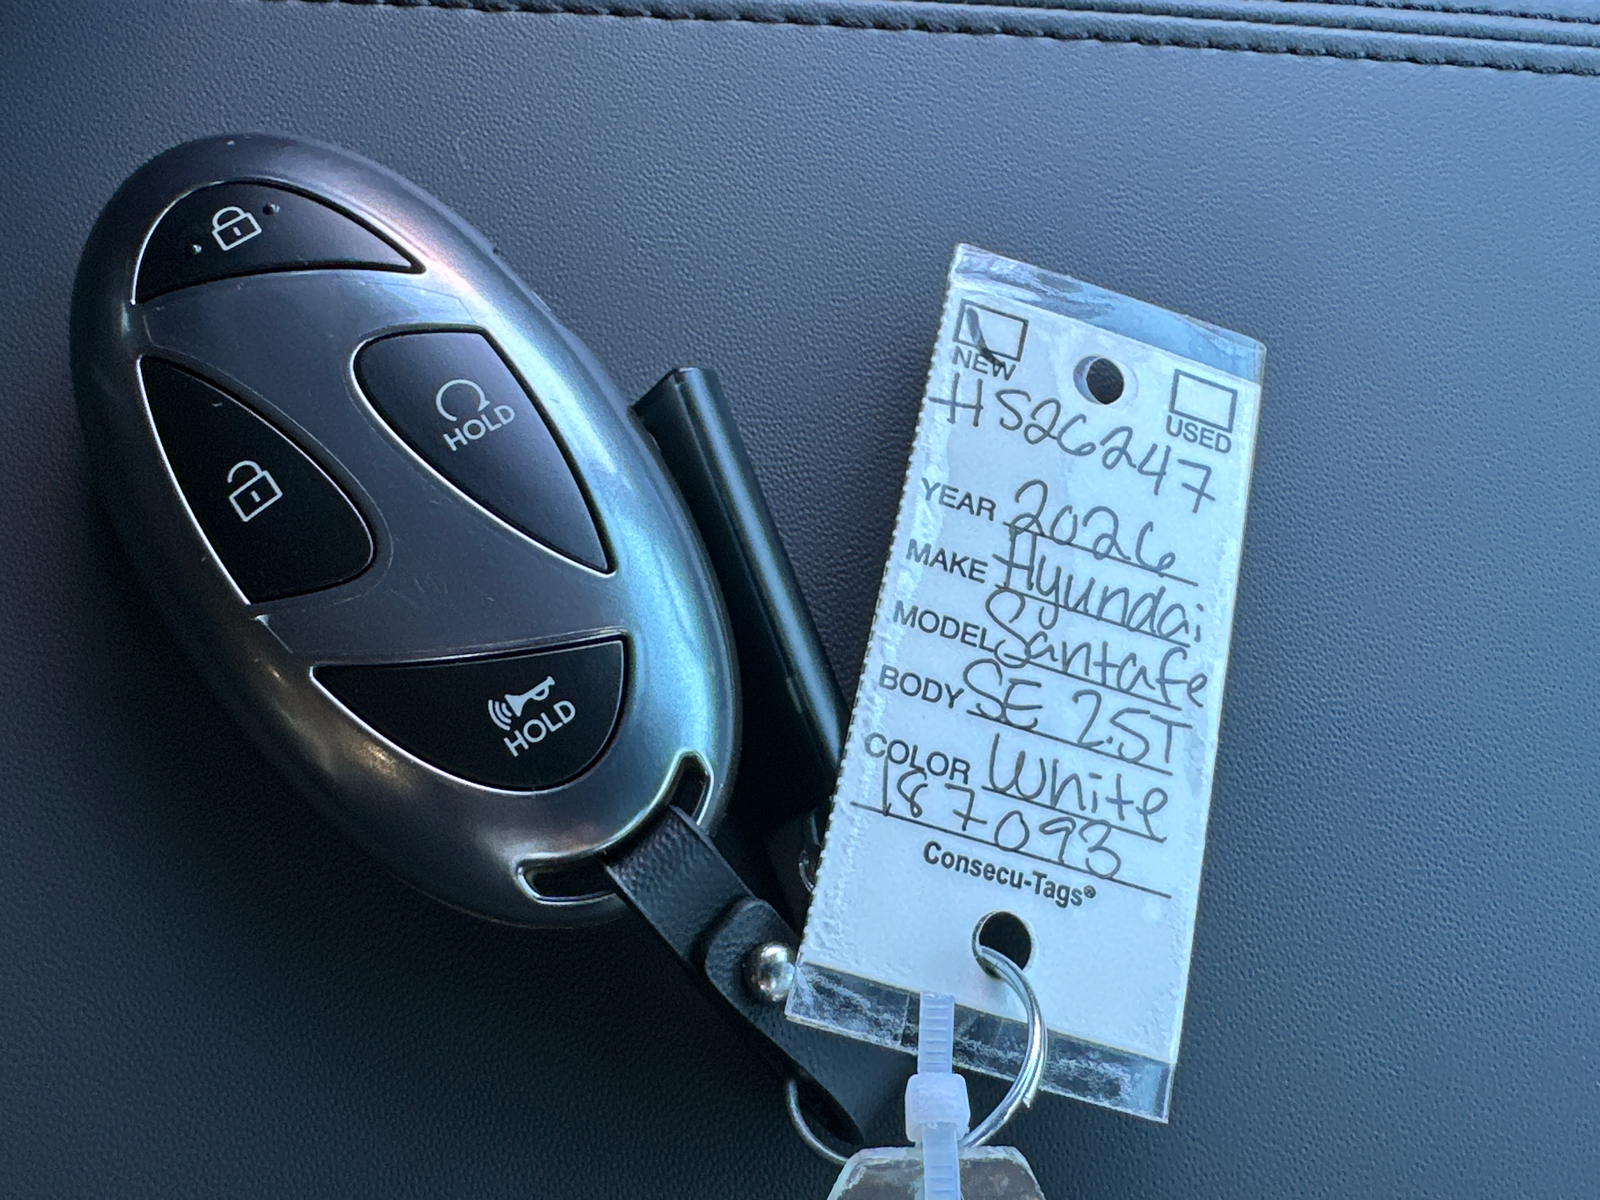 HOLD
HOLD
NEW
USED
HS26247
YEAR 2026
MAKE Hyundai
MODEL Santafe
BODY SE 2.5T
COLOR White
187093
Consecu-Tags®